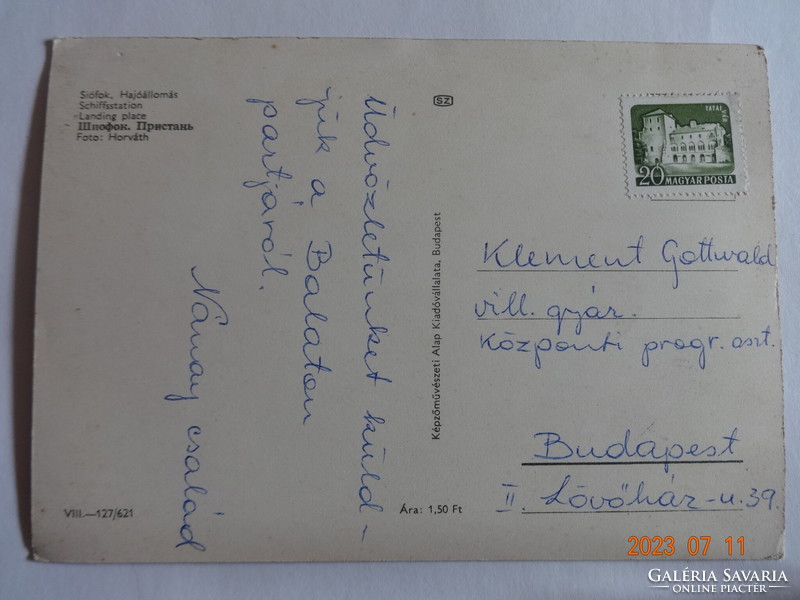 Siófok, Hajóállomás
Schiffsstation
Landing place
Шиофок. Пристань
Foto: Horváth
Üdvözletünket küld-
jük a Balaton
partjáról.
Nánay család
VIII.—127/621
SZ
Képzőművészeti Alap Kiadóvállalata, Budapest
Ára: 1,50 Ft
TATAI VÁR
20 MAGYAR POSTA
Klement Gottwald
vill. gyár.
Központi progr. oszt.
Budapest
II. Lövőház-u. 39.
2023 07 11
GALÉRIA SAVARIA
ONLINE PIACTÉR